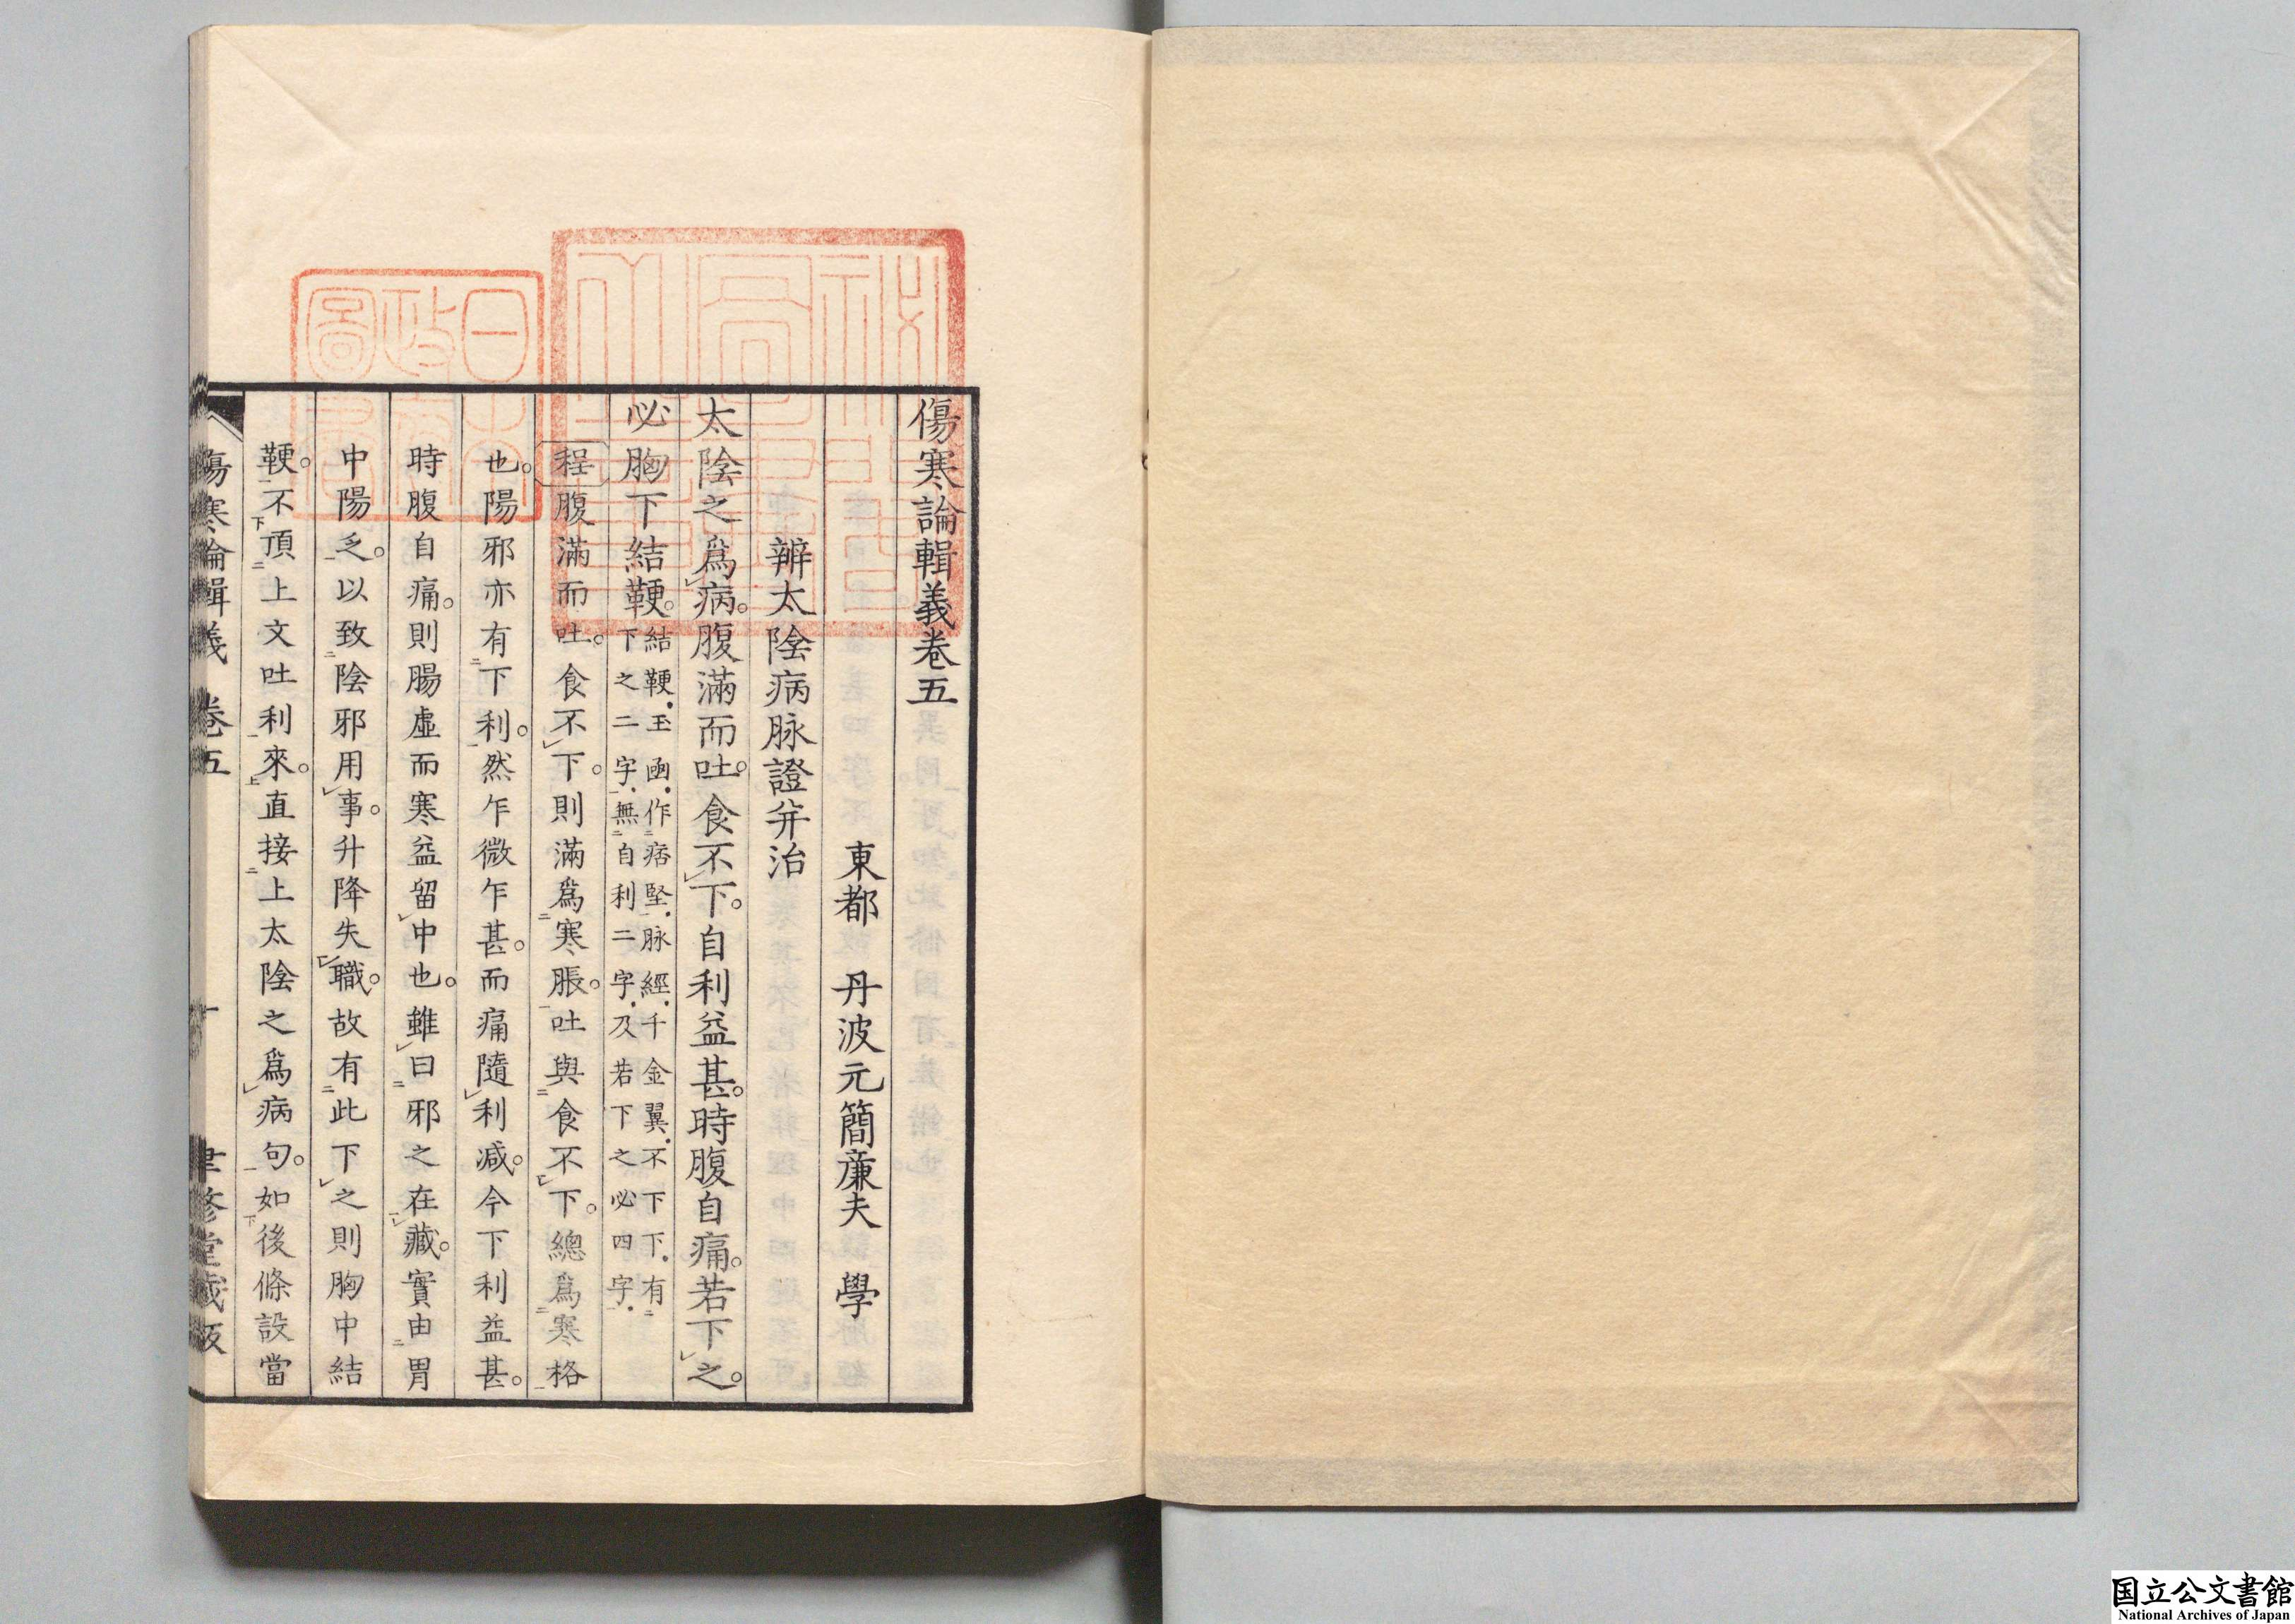 傷寒論輯義卷五
東都 丹波元簡廉夫 學
辨太陰病脉證并治
太陰之爲病。腹滿而吐。食不下。自利益甚。時腹自痛。若下之。
必胸下結鞕。結鞕。玉函。作痞堅。脉經。千金翼。不下下。有
下之二字。無自利二字。及若下之必四字。
程腹滿而吐。食不下。則滿爲寒脹。吐與食不下。總爲寒格
也。陽邪亦有下利。然乍微乍甚。而痛隨利減。今下利益甚。
時腹自痛。則腸虛而寒益留中也。雖曰邪之在藏。實由胃
中陽乏。以致陰邪用事。升降失職。故有此下之則胸中結
鞕。不頂上文吐利來。直接上太陰之爲病句。如後條設當
傷寒論輯義 卷五
聿修堂藏版
国立公文書館
National Archives of Japan